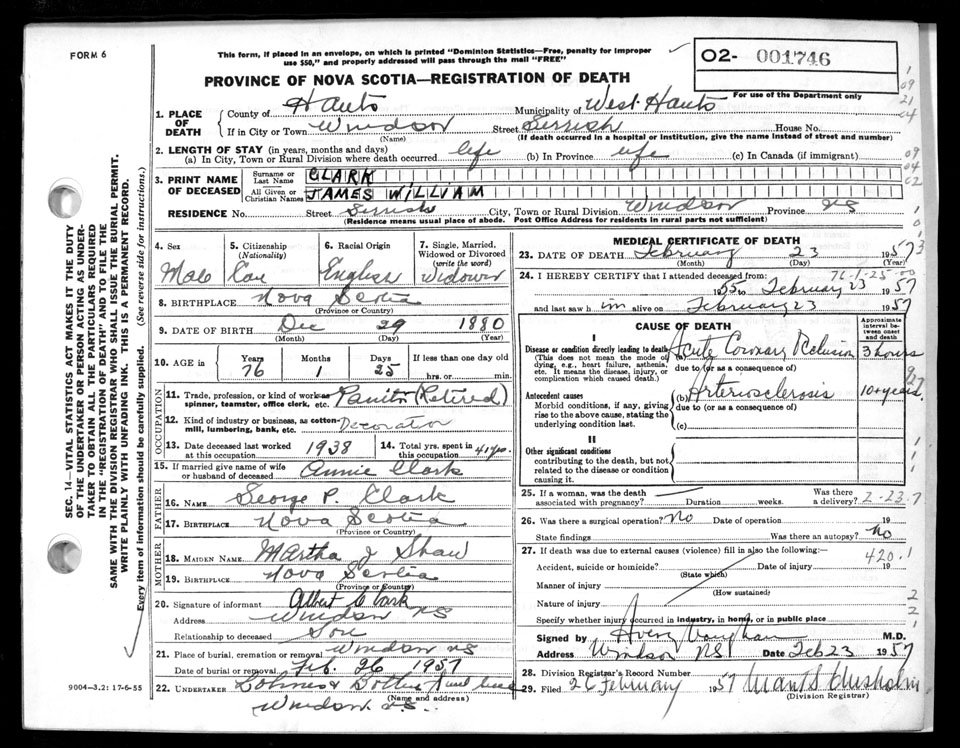 FORM 6
This form, if placed in an envelope, on which is printed "Dominion Statistics—Free, penalty for improper
use $50," and properly addressed will pass through the mail "FREE"
02- 001746
For use of the Department only
PROVINCE OF NOVA SCOTIA—REGISTRATION OF DEATH
1. PLACE OF DEATH
County of Hants Municipality of West Hants
If in City or Town Windsor Street House No.
(Name) (If death occurred in a hospital or institution, give the name instead of street and number)
2. LENGTH OF STAY (in years, months and days)
(a) In City, Town or Rural Division where death occurred life (b) In Province life (c) In Canada (if immigrant)
3. PRINT NAME OF DECEASED
Surname or Last Name CLARK
All Given or Christian Names JAMES WILLIAM
RESIDENCE No. Street City, Town or Rural Division Windsor Province NS
(Residence means usual place of abode. Post Office Address for residents in rural parts not sufficient)
4. Sex Male
5. Citizenship (Nationality) Can
6. Racial Origin English
7. Single, Married, Widowed or Divorced (write the word) Widower
8. BIRTHPLACE Nova Scotia
(Province or Country)
9. DATE OF BIRTH Dec 29 1880
(Month) (Day) (Year)
10. AGE in Years 76 Months 1 Days 25 If less than one day old hrs. or min.
OCCUPATION
11. Trade, profession, or kind of work as spinner, teamster, office clerk, etc. (Retired)
12. Kind of industry or business, as cotton-mill, lumbering, bank, etc. Decorator
13. Date deceased last worked at this occupation 1938
14. Total yrs. spent in this occupation 41 yrs.
15. If married give name of wife or husband of deceased Annie Clark
FATHER
16. NAME George P. Clark
17. BIRTHPLACE Nova Scotia
(Province or Country)
MOTHER
18. MAIDEN NAME Martha J Shaw
19. BIRTHPLACE Nova Scotia
(Province or Country)
20. Signature of informant Albert Clark
Address Windsor NS
Relationship to deceased Son
21. Place of burial, cremation or removal Windsor NS
Date of burial or removal Feb. 26 1957
22. UNDERTAKER
(Name and address)
Windsor N.S.
9004—3.2: 17-6-55
MEDICAL CERTIFICATE OF DEATH
23. DATE OF DEATH February 23 1957
(Month) (Day) (Year)
76-1-25-00
24. I HEREBY CERTIFY that I attended deceased from:
1955 to February 23 1957
and last saw him alive on February 23 1957
CAUSE OF DEATH
Approximate interval between onset and death
I
Disease or condition directly leading to death
(This does not mean the mode of dying, e.g., heart failure, asthenia, etc. It means the disease, injury, or complication which caused death.)
(a) Acute Coronary Occlusion 3 hours
due to (or as a consequence of)
Antecedent causes
Morbid conditions, if any, giving rise to the above cause, stating the underlying condition last.
(b) Arteriosclerosis 10+ years
due to (or as a consequence of)
(c)
II
Other significant conditions
contributing to the death, but not related to the disease or condition causing it.
25. If a woman, was the death associated with pregnancy? Duration weeks. Was there a delivery? 2-23-7
26. Was there a surgical operation? No Date of operation 19
State findings Was there an autopsy? No
27. If death was due to external causes (violence) fill in also the following:—
420.1
Accident, suicide or homicide? Date of injury 19
(State which)
Manner of injury
(How sustained)
Nature of injury
Specify whether injury occurred in industry, in home, or in public place
Signed by Avery Vaughan M.D.
Address Windsor NS Date Feb 23 1957
28. Division Registrar's Record Number
29. Filed 26 February 1957 Chisholm
(Division Registrar)
SEC. 14—VITAL STATISTICS ACT MAKES IT THE DUTY
OF THE UNDERTAKER OR PERSON ACTING AS UNDER-
TAKER TO OBTAIN ALL THE PARTICULARS REQUIRED
IN THE "REGISTRATION OF DEATH" AND TO FILE THE
SAME WITH THE DIVISION REGISTRAR WHO SHALL ISSUE THE BURIAL PERMIT.
WRITE PLAINLY WITH UNFADING INK. THIS IS A PERMANENT RECORD.
Every item of information should be carefully supplied. (See reverse side for instructions.)
1
09
21
04
09
04
02